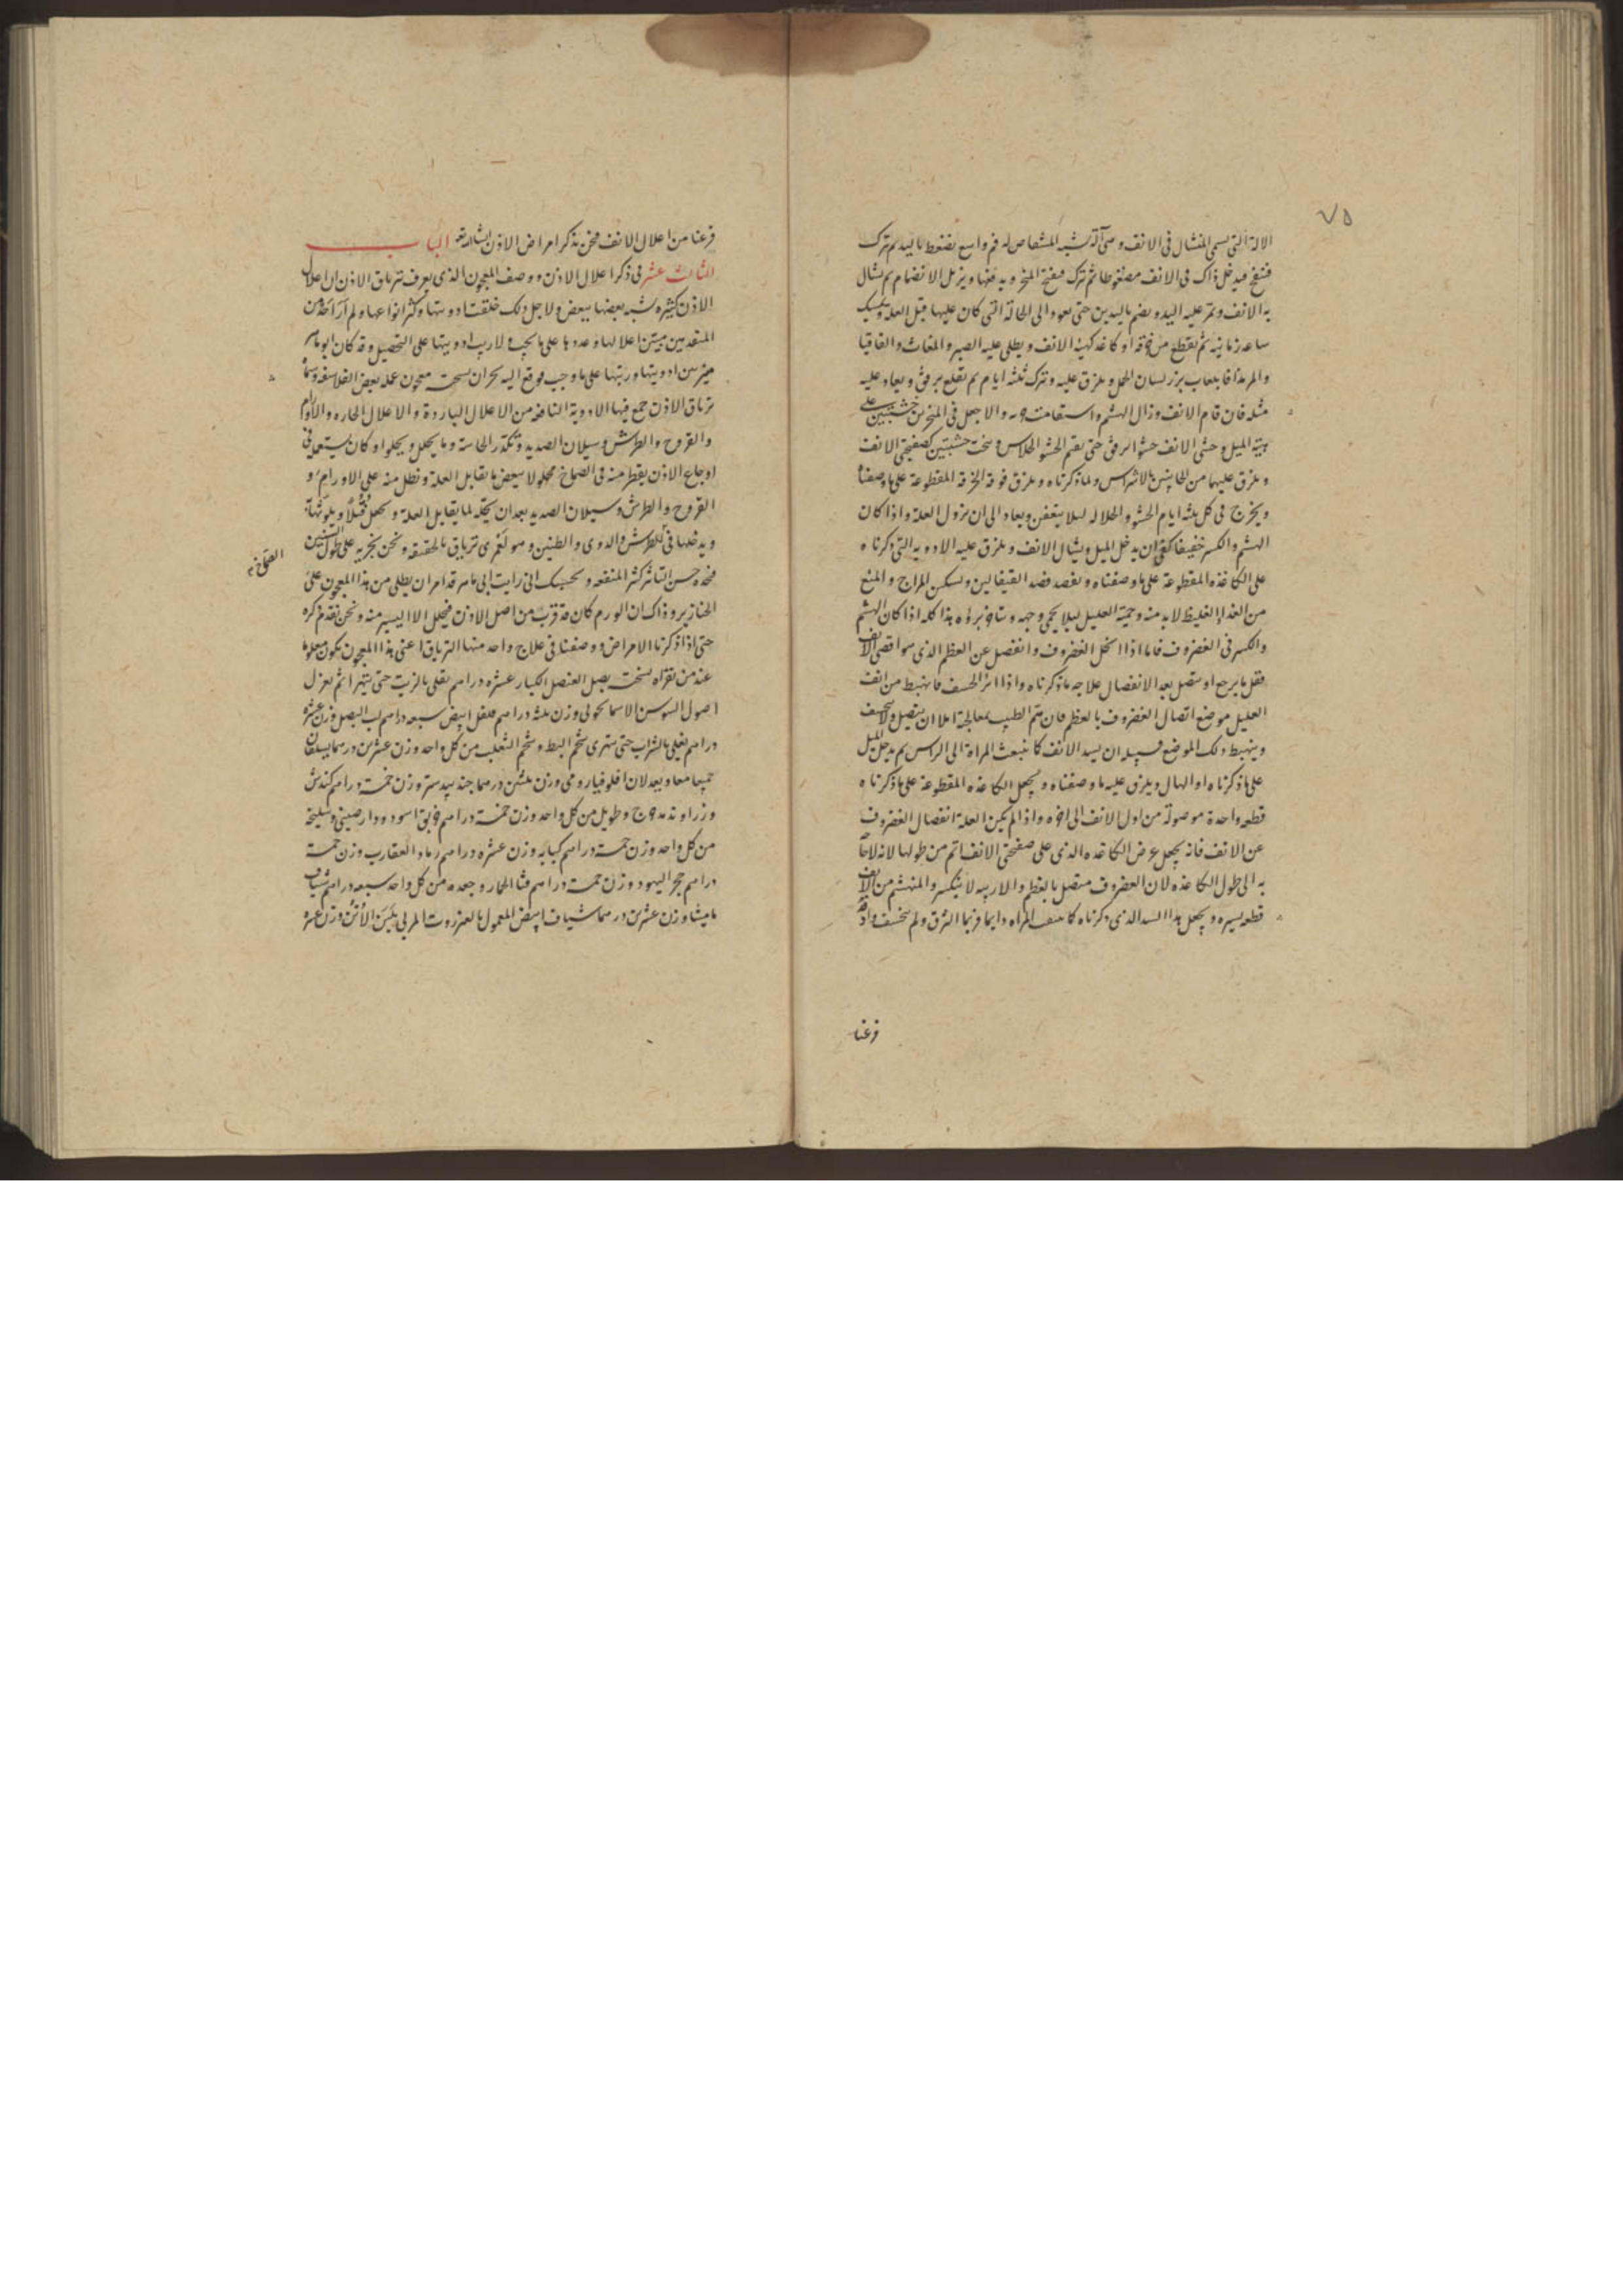 ٧٥
الالة التى تسمى المنشال فى الانف وهى آلة تشبه المشقاص له فم واسع يضغط باليد ثم تترك
فتنفتح فيدخل ذاك فى الانف مضغوطا ثم تترك فيفتح المنخر وبه فيها ويزيل الانضمام ثم يشال
به الانف وتمر عليه اليد ويضم باليدين حتى يعود الى الحالة التى كان عليها قبل العلة ويمسك
ساعة زمانية ثم يقطع من خرقة او كاغد كهيئة الانف ويطلى عليه الصبر والمغاث والقاقيا
والمر مذافا بلعاب بزر لسان الحمل ويلزق عليه ويترك ثلثه ايام ثم يقلع برفق ويعاد عليه
مثله فان قام الانف وزال الهشم واستقامت والا جعل فى المنخرين خشبتين على
هيئة الميل وحشى الانف حشوا برفق حتى يقيم الحشو ونحت خشبتين كصفيحتى الانف
ويلزق عليهما من الجانبين بالاشراس ولما ذكرناه ويلزق فوقه الخرقة المقطوعة على ما وصفنا
ويخرج فى كل ثلثه ايام الحشو لئلا يتعفن ويعاد الى ان يزول العلة واذا كان
الهشم والكسر خفيفا كفى ان يدخل الميل ويشال الانف ويلزق عليه الادويه التى ذكرناه
على الكاغذه المقطوعة على ما وصفناه ويفصد فصد القيفالين وتسكين المزاج والمنع
من الغداء الغليظ لابد منه وحمية العليل لئلا يحمى وجهه ويتاخر برؤه هذا كله اذا كان الهشم
والكسر فى الغضروف فاما اذا انخل الغضروف وانفصل عن العظم الذى هو اقصى الانف
فقل ما يرجع او يتصل بعد الانفصال علاجه ما ذكرناه واذا انخسف فانهبط من انف
العليل موضع اتصال الغضروف بالعظم فان تم الطبيب بمعالجة املا ان يتصل ولا ينخسف
وينهبط ذلك الموضع فسبيله ان يسد الانف كا تبعث المراة الى الراس ثم يدخل الميل
على ما ذكرناه او الهال ويلزق عليه ما وصفناه ويجعل الكاغذه المقطوعة على ما ذكرناه
قطعه واحدة موصولة من اول الانف الى اخره واذا لم يكن العلة انفصال الغضروف
عن الانف فانه يجعل عرض الكاغده الذى على صفحتى الانف اتم من طولها لانه لا حاجة
به الى طول الكاغذه لان الغضروف متصل بالعظم والارنبه لا ينكسر والمنهشم من الانف
قطعه يسيره ويجعل هذا السد الذى ذكرناه المراه دايما فربما التزق ولم ينخسف واذ قد
فرغنا
فرغنا من اعلال الانف فنحن نذكر امراض الاذن انشاالله تعا الباب
الثالث عشر فى ذكر اعلال الاذن ووصف المعجون الذى يعرف بترياق الاذن ان اعلال
الاذن كثيره يشبه بعضها ببعض ولاجل ذلك خلقت ادويتها وكثر انواعها ولم ار احدا من
المتقدمين ميز اعلالها وعددها على ما يجب ولا رتب ادويتها على التحصيل وقد كان ابو ماهر
ميز بين ادويتها ورتبها على ما وجب فوقع اليه بحران نسخت معجون عمله بعض الفلاسفه وسماه
ترياق الاذن جمع فيها الادوية النافعة من الاعلال الباردة والاعلال الحاره والاورام
والقروح والطرش وسيلان الصديد وتكدر الحاسة وما يحلل ويجلو وكان يستعمله فى
اوجاع الاذن يقطر منه فى الصماخ محلولا ببعض ما يقابل العلة ويطلى منه على الاورام و
القروح والطرش وسيلان الصديد بعد ان يحله بما يقابل العلة ويجعل فتلا ويلوثها به
ويدخلها فى الطرش والدوى والطنين وهو لعمرى ترياق بالحقيقه ونحن نجربه على طول السنين
العلى خ
فنجده حسن التاثير كثير المنفعه وحسبك انى رايت ابى ماهر قد امر ان يطلى من هذا المعجون على
الخنازير وذاك ان الورم كان قد قرب من اصل الاذن فيحلل الا اليسير منه ونحن نقدم ذكره
حتى اذا ذكرنا الامراض ووصفنا فى علاج واحد منها الترياق اعنى هذا المعجون يكون معلوما
عند من يقراه نسخت بصل العنصل الكبار عشره دراهم يقلى بالزيت حتى يتهرا ثم يعزل
اصول السوسن الاسمانجونى وزن ثلثه دراهم فلفل ابيض سبعه دراهم لب البصل وزن عشره
دراهم يغلى بالشراب حتى يتهرى شحم البط وشحم الثعلب من كل واحد وزن عشرين درهما يسليان
جميعا معا ويعدلان وزن درهما جند بيدستر وزن خمسة دراهم كندش
وزراوند مدحرج وطويل من كل واحد وزن خمسة دراهم خربق اسود ودارصينى وسليخة
من كل واحد وزن خمسة دراهم كبابه وزن عشره دراهم رماد العقارب وزن خمسة
دراهم حجر اليهود وزن خمسة دراهم قثا الحمار وجعده من كل واحد سبعه دراهم شياف
ماميثا وزن عشرين درهما شياف ابيض المعمول بالعنزروت المربى بلبن الاتن وزن عشره